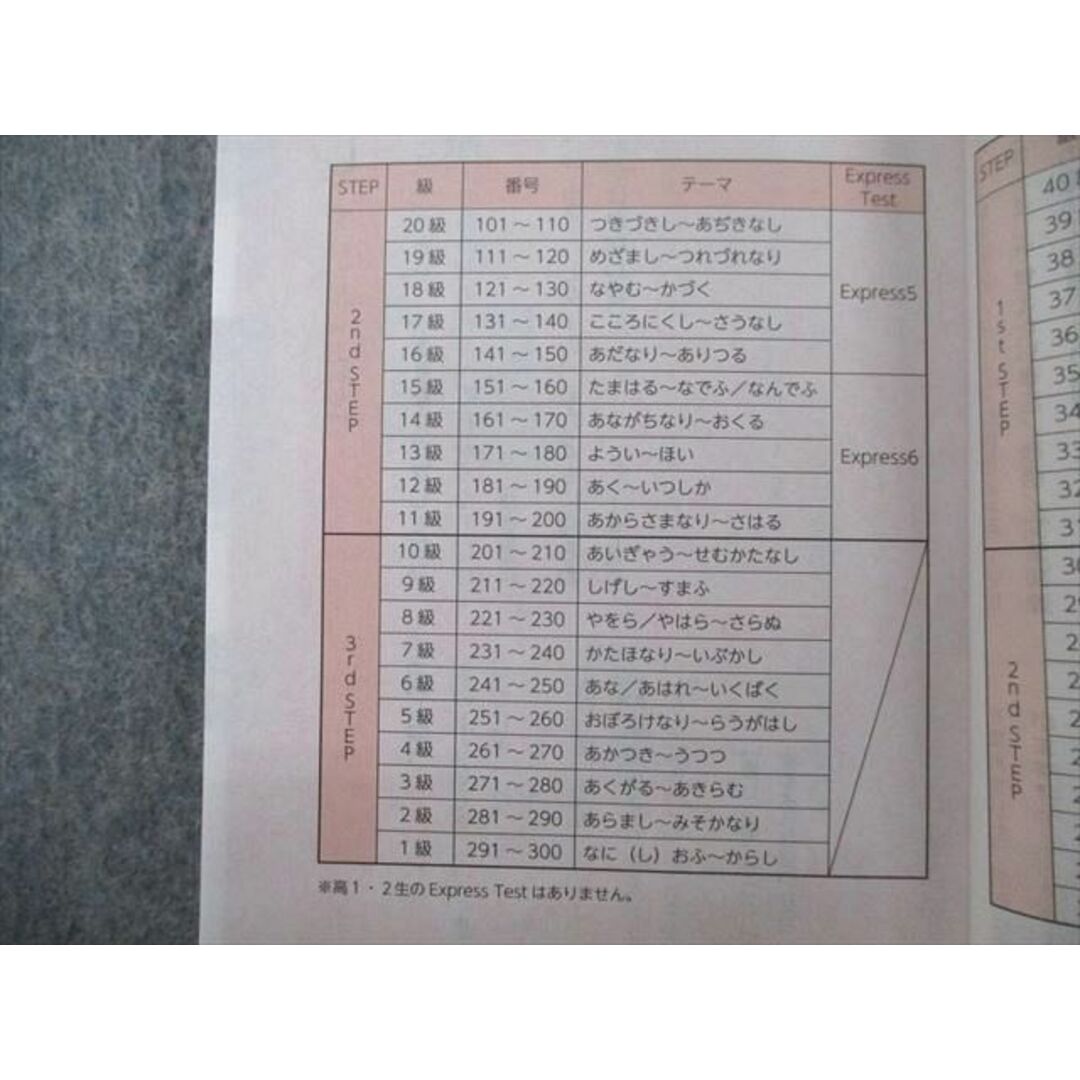 STEP 級 番号 テーマ Express Test
2nd STEP
20級 101～110 つきづきし～あぢきなし
19級 111～120 めざまし～つれづれなり
18級 121～130 なやむ～かづく Express5
17級 131～140 こころにくし～さうなし
16級 141～150 あだなり～ありつる
15級 151～160 たまはる～なでふ／なんでふ
14級 161～170 あながちなり～おくる
13級 171～180 ようい～ほい Express6
12級 181～190 あく～いつしか
11級 191～200 あからさまなり～さはる
3rd STEP
10級 201～210 あいぎゃう～せむかたなし
9級 211～220 しげし～すまふ
8級 221～230 やをら／やはら～さらぬ
7級 231～240 かたほなり～いぶかし
6級 241～250 あな／あはれ～いくばく
5級 251～260 おぼろけなり～らうがはし
4級 261～270 あかつき～うつつ
3級 271～280 あくがる～あきらむ
2級 281～290 あらまし～みそかなり
1級 291～300 なに（し）おふ～からし
※高1・2生のExpress Testはありません。
STEP
1st STEP
40
39
38
37
36
35
34
33
32
31
2nd STEP
30